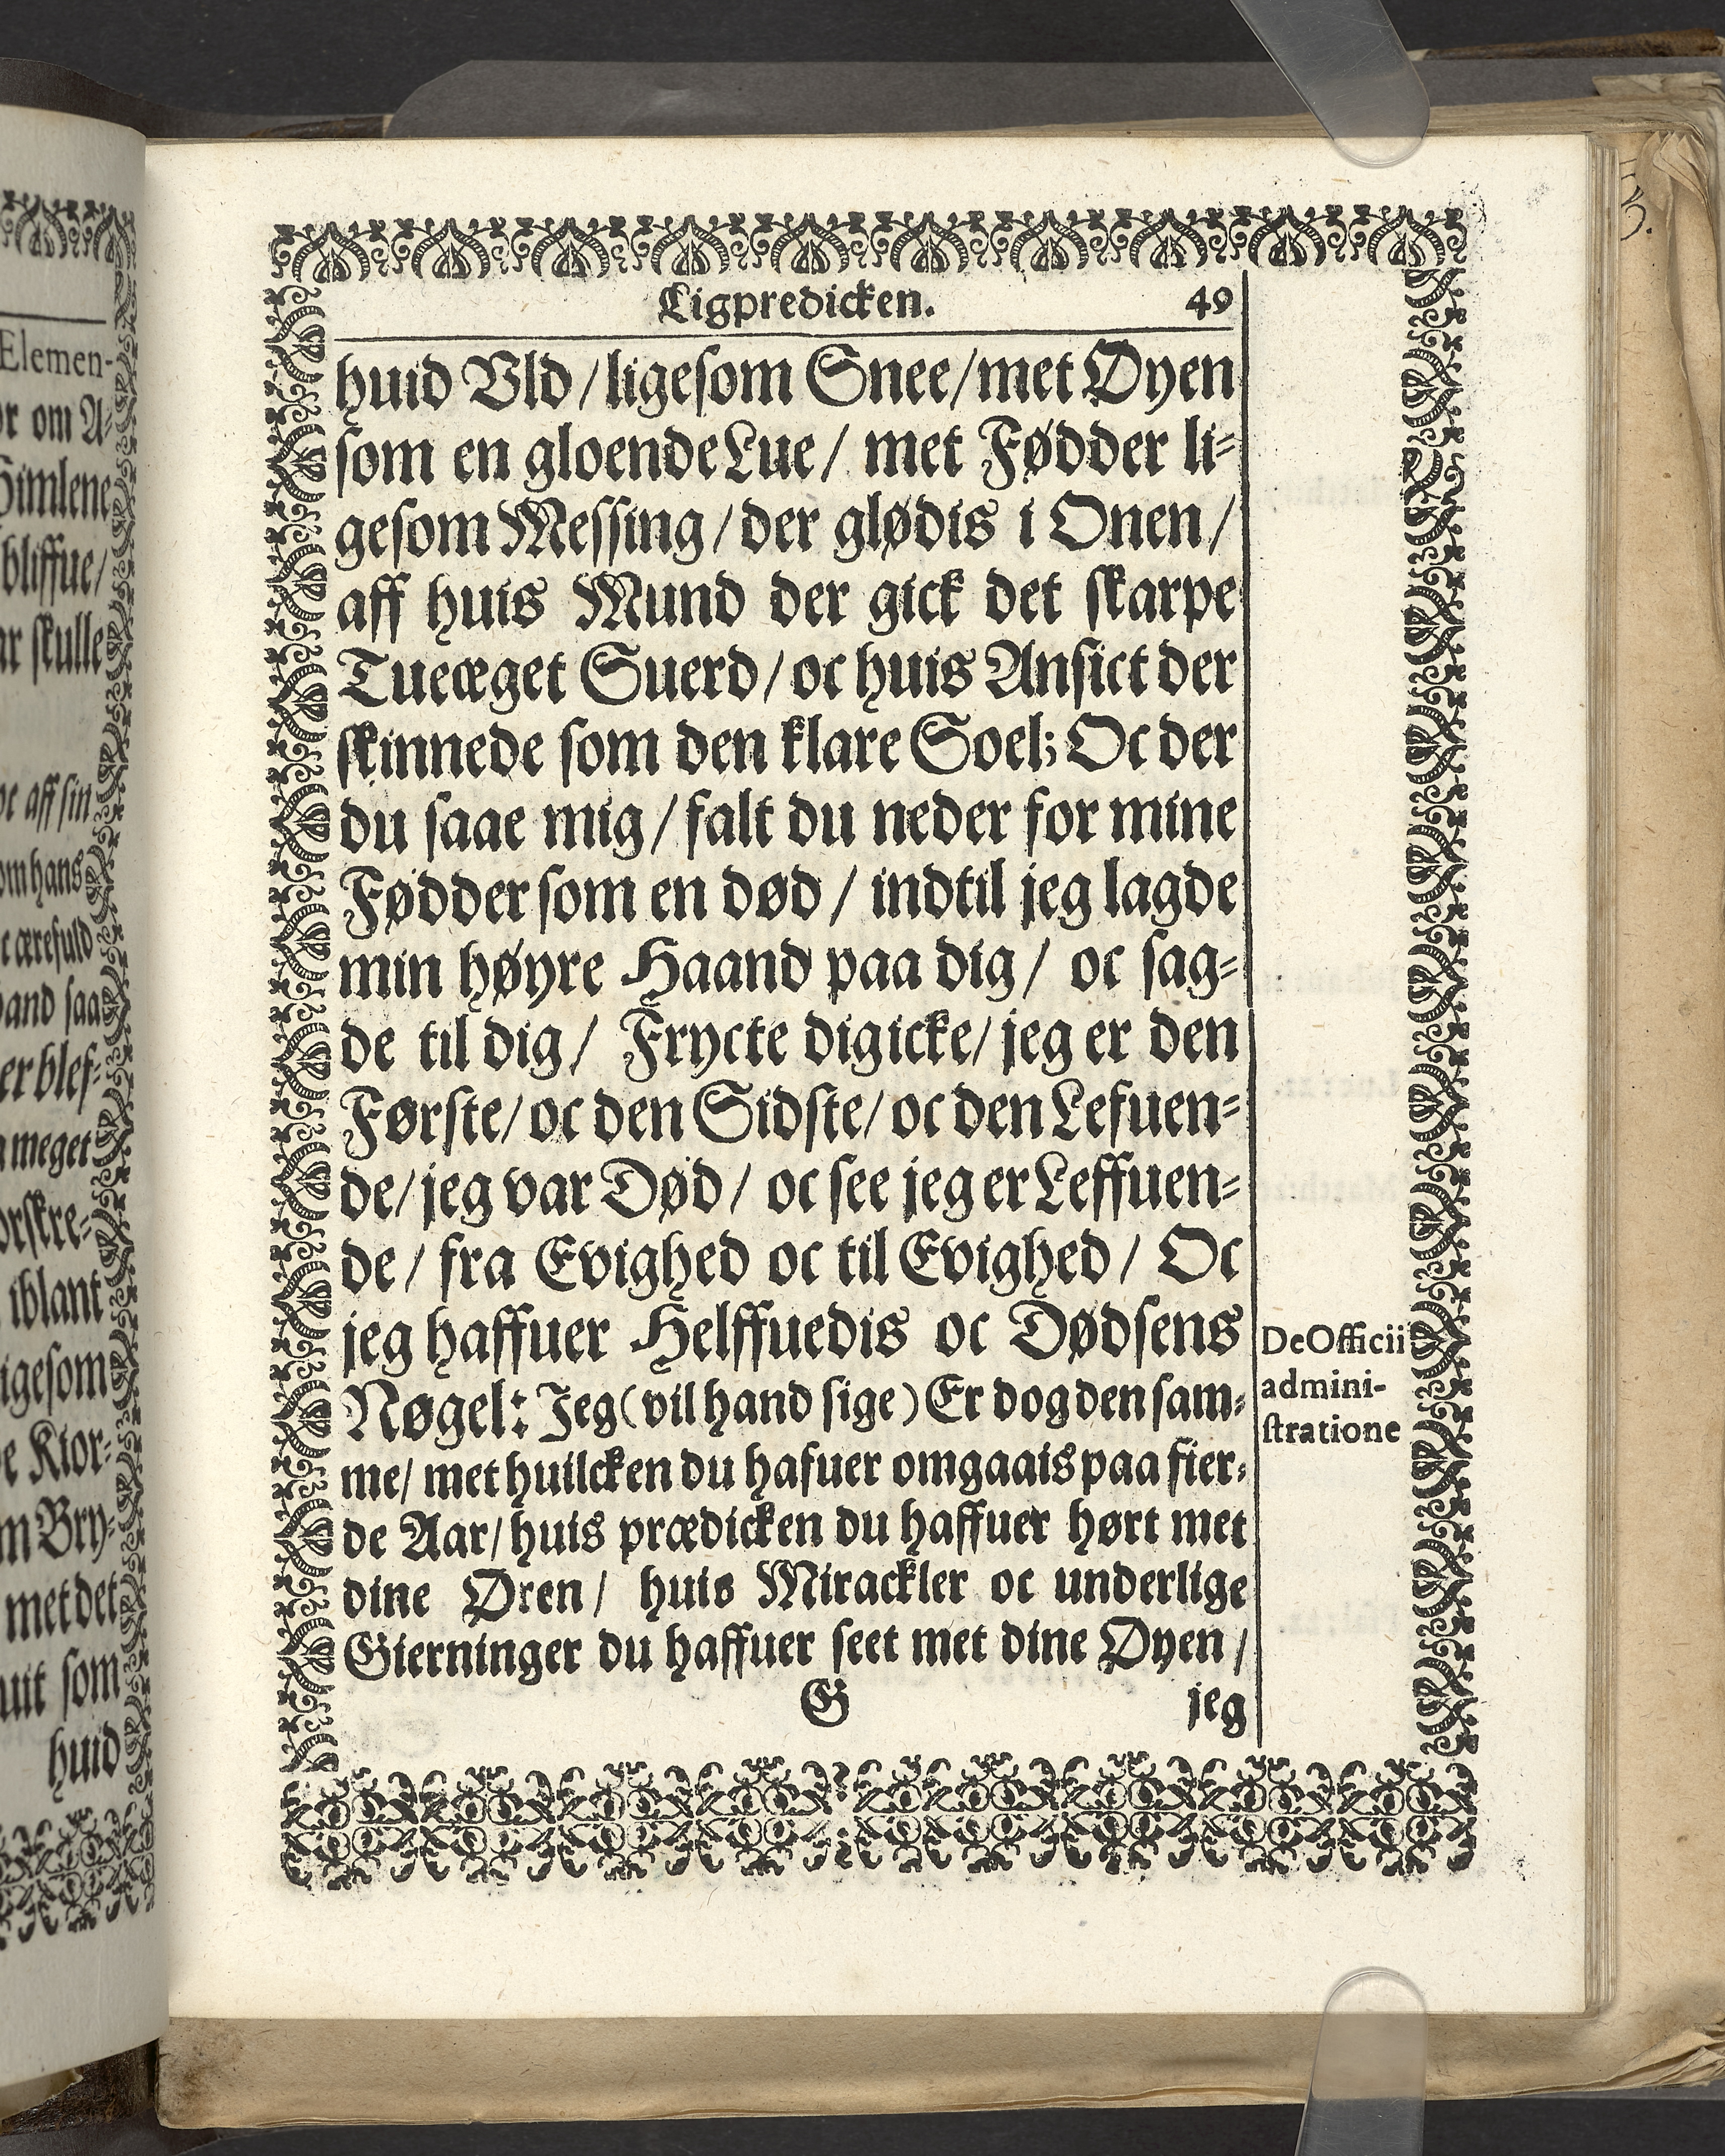 Elemen-
or om A-
Himlene
bliffue/
ar skulle
oc aff sin
om hans
c ærefuld
hand saa
er blef-
meget
orskre-
iblant
igesom
e Ktor-
m Bry-
met det
uit som
huid
Ligpredicken. 49
huid Vld / ligesom Snee / met Øyen
som en gloende Lue / met Fødder li-
gesom Messing / der glødis i Onen /
aff huis Mund der gick det skarpe
Tueæget Suerd / oc huis Ansict der
skinnede som den klare Soel; Oc der
du saae mig / falt du neder for mine
Fødder som en død / indtil jeg lagde
min høyre Haand paa dig / oc sag-
de til dig / Frycte dig icke / jeg er den
Første / oc den Sidste / oc den Lefuen-
de / jeg var Død / oc see jeg er Leffuen-
de / fra Evighed oc til Evighed / Oc
jeg haffuer Helffuedis oc Dødsens
Nøgel: Jeg (vil hand sige) Er dog den sam-
me / met huilcken du hafuer omgaais paa fier-
de Aar / huis prædicken du haffuer hørt met
dine Øren / huis Mirackler oc underlige
Gierninger du haffuer seet met dine Øyen /
G jeg
De Officii
admini-
stratione
3.